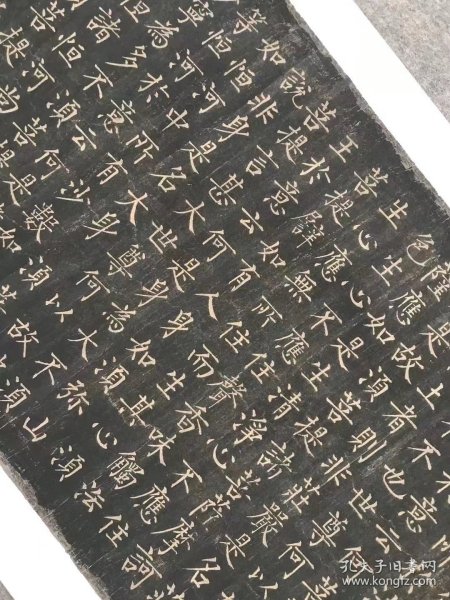 意云
不也世尊何以
土者則非莊嚴是名
是故須菩提諸菩薩摩訶
薩應如是生清淨心不應住
色生心不應住聲香味觸法
生心應無所住而生其心須
菩提譬如有人身如須彌山
王於意云何是身為大不須
菩提言甚大世尊何以故
說非身是名大身須
如恒河中所有沙數如
等恒河於意云何是
寧為多不須菩提
孔夫子旧书网
www.kongfz.com